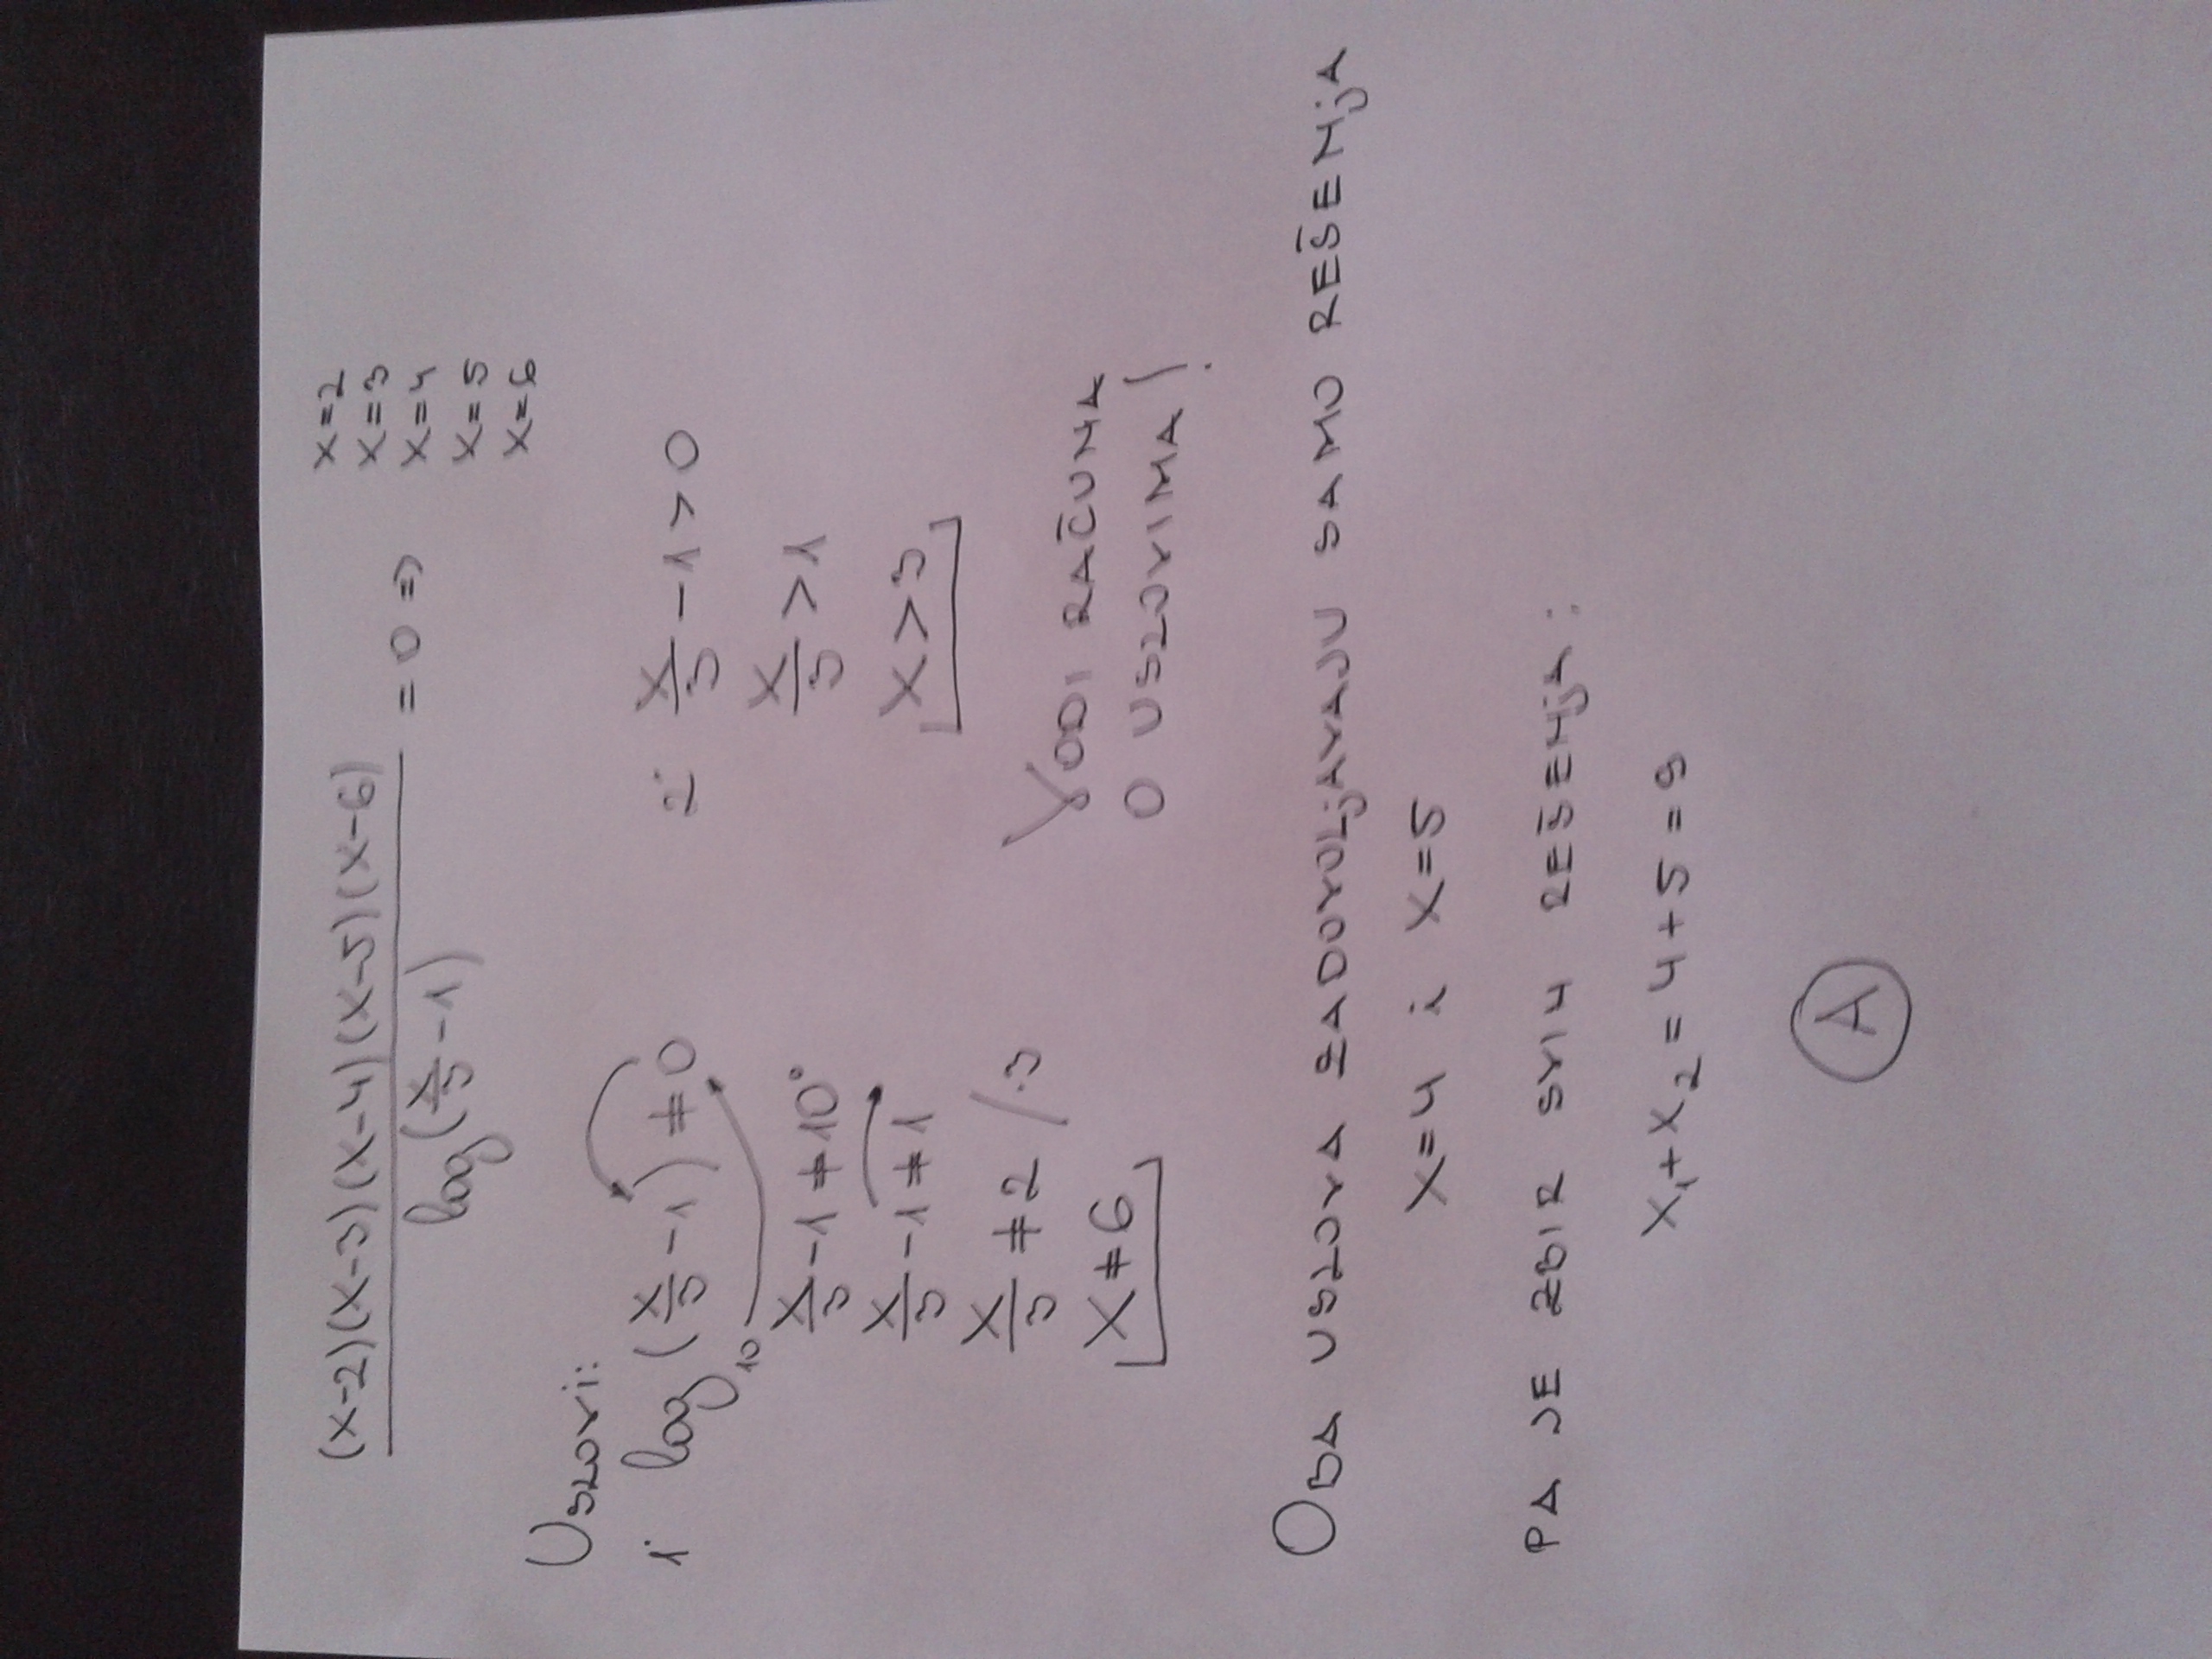 (x-2)(x-3)(x-4)(x-5)(x-6) / log(x/3 -1) = 0 =>
x=2
x=3
x=4
x=5
x=6
Uslovi:
1° log₁₀(x/3 -1) ≠ 0
x/3 -1 ≠ 10°
x/3 -1 ≠ 1
x/3 ≠ 2 /·3
x ≠ 6
2° x/3 -1 > 0
x/3 > 1
x > 3
VODI RAČUNA
O USLOVIMA!
OBA USLOVA ZADOVOLjAVAJU SAMO REŠENjA
x=4 i x=5
PA JE ZBIR SVIH REŠENjA:
x₁+x₂ = 4+5 = 9
A